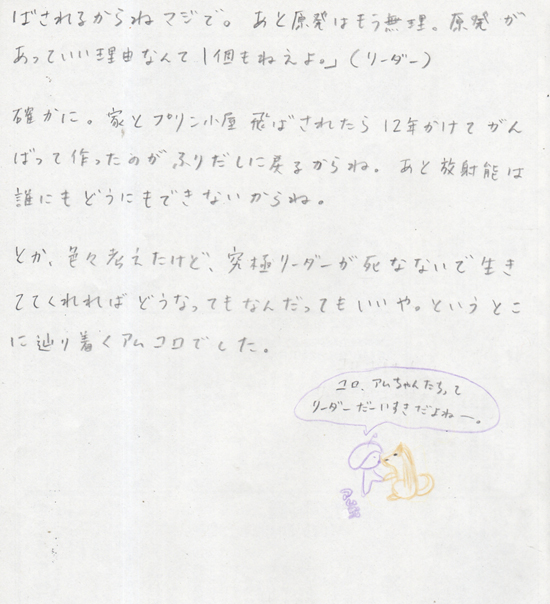 ばされるからねマジで。あと原発はもう無理。原発が
あっていい理由なんて1個もねえよ。」(リーダー)
確かに。家とプリン小屋飛ばされたら12年かけてがん
ばって作ったのがふりだしに戻るからね。あと放射能は
誰にもどうにもできないからね。
とか、色々考えたけど、究極リーダーが死なないで生き
ててくれればどうなってもなんだってもいいや。というとこ
に辿り着くアムコロでした。
コロ、アムちゃんたちって
リーダーだーいすきだよねー。